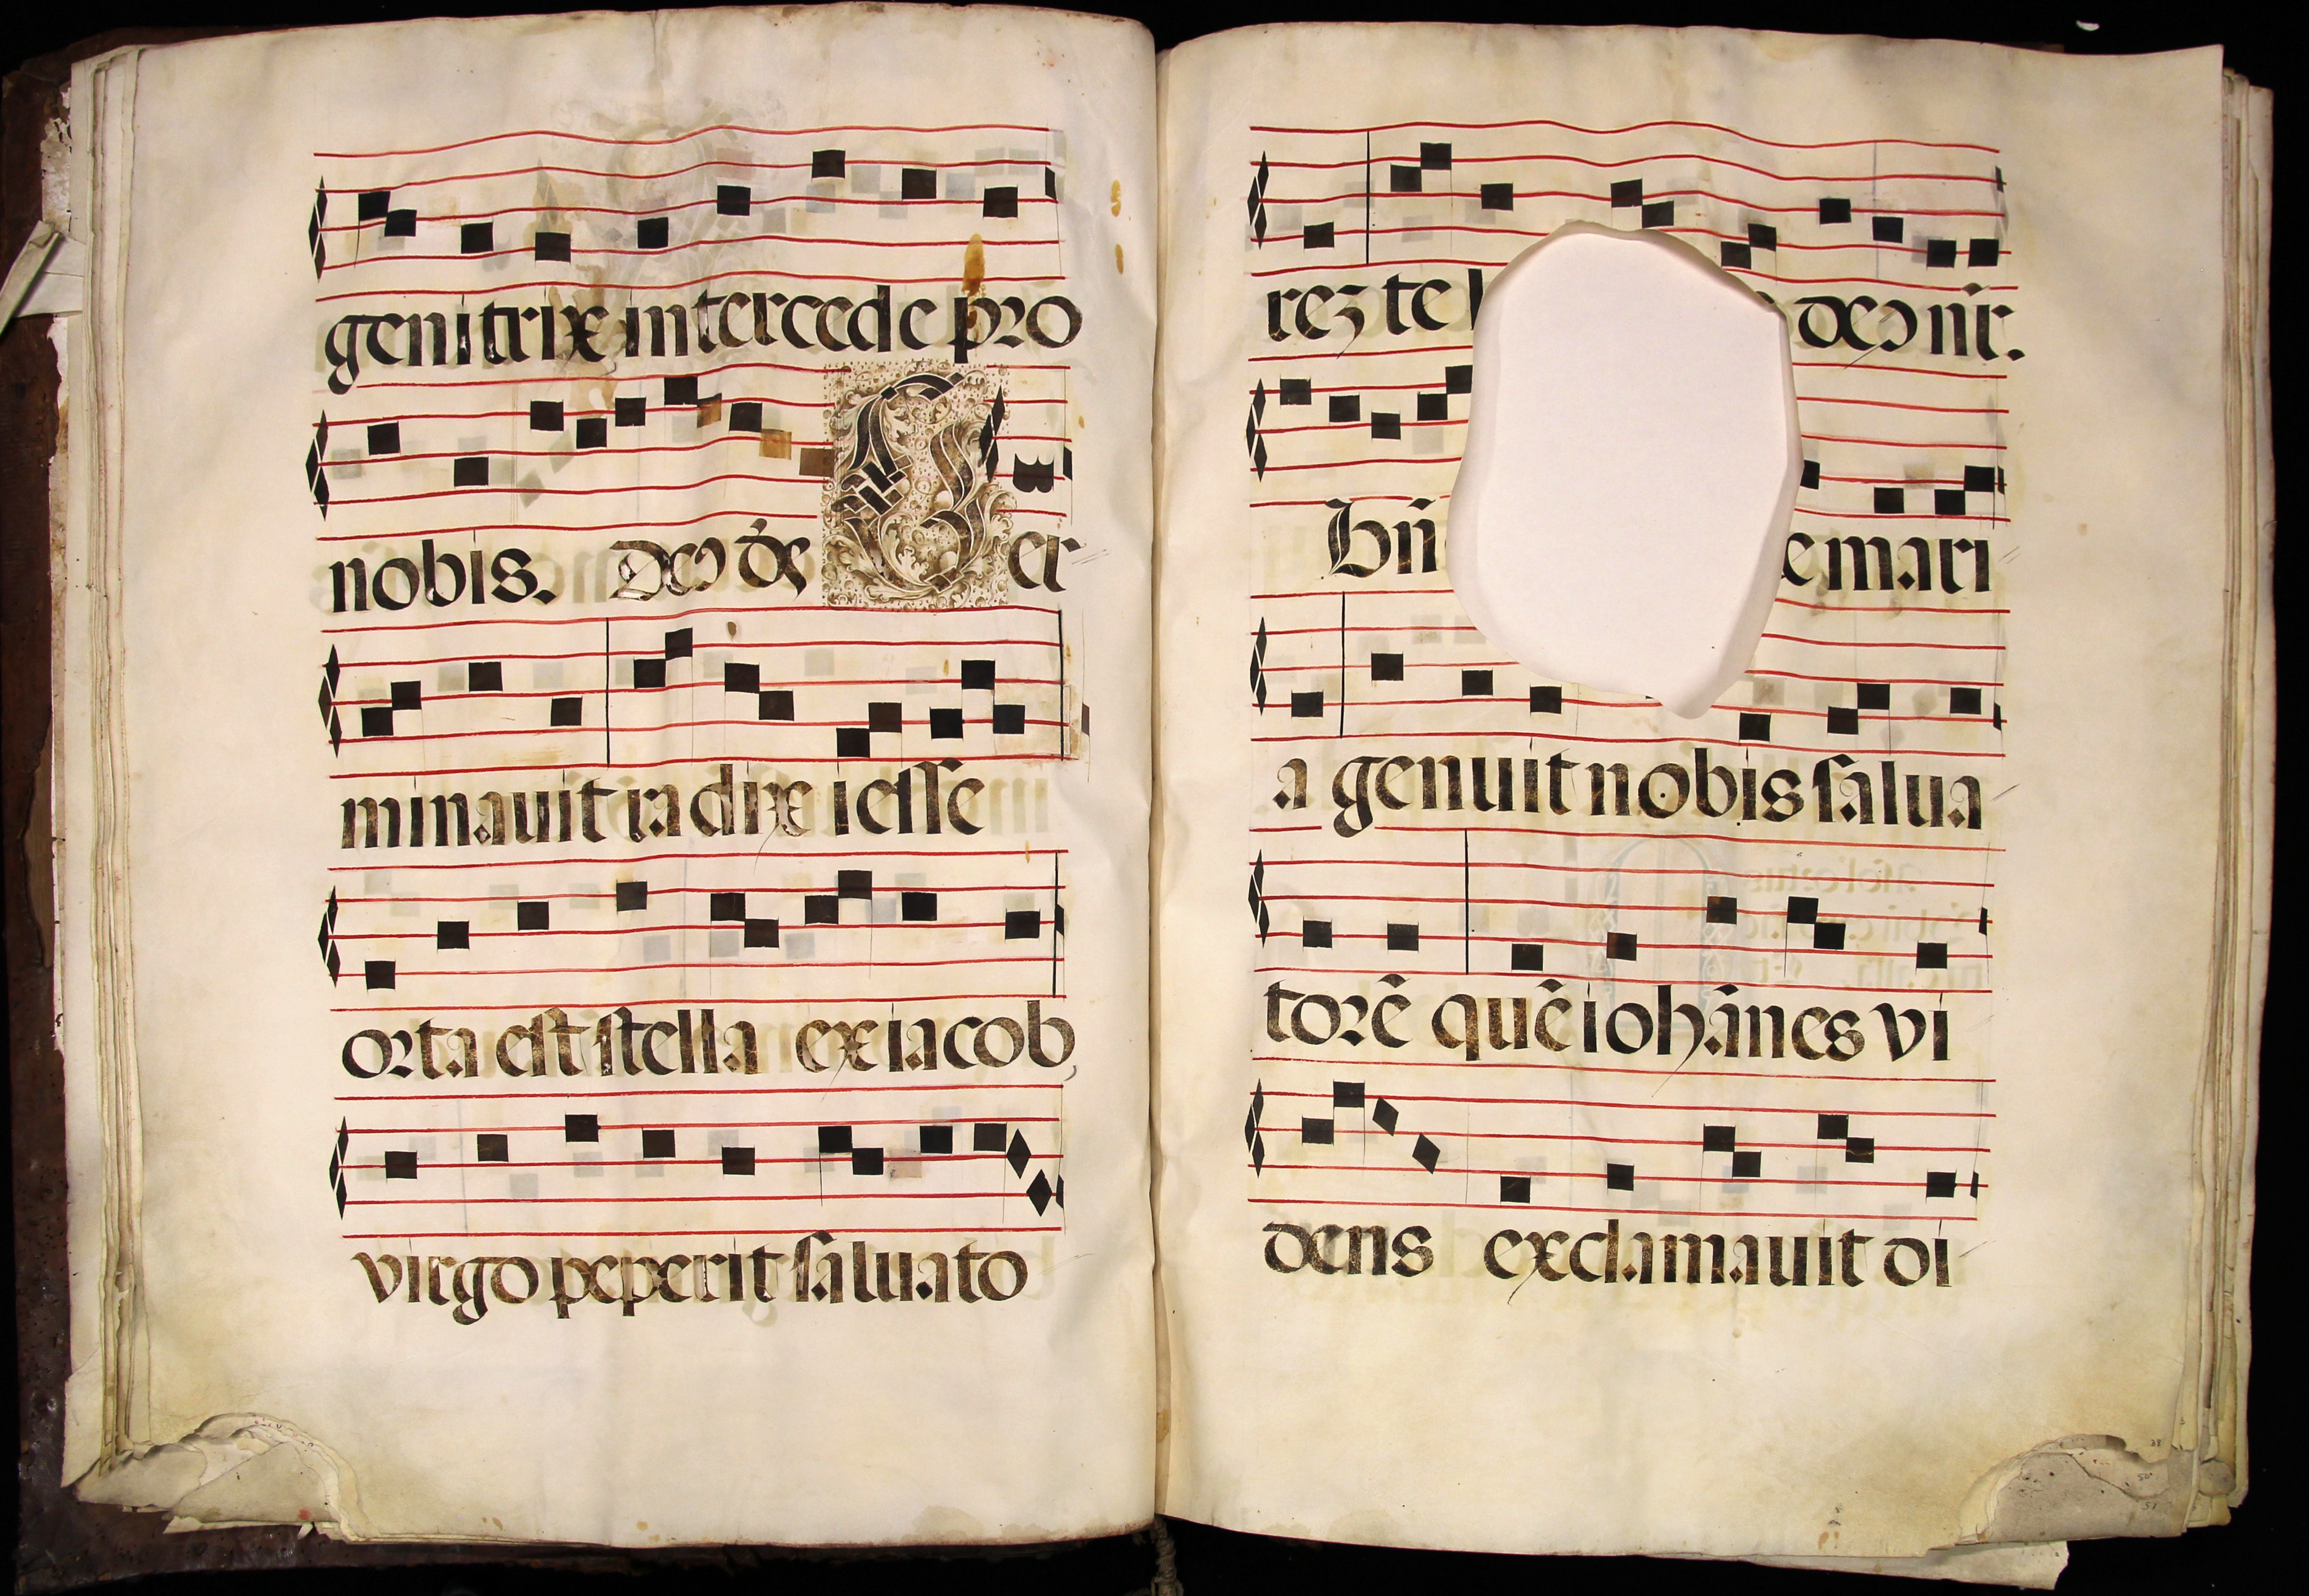 genitrix intercede pro
nobis. Deus
Ger
minauit radix iesse
orta est stella ex iacob
virgo peperit saluato
rez te deus nr̃.
e mari
a genuit nobis salua
torẽ quẽ iohãnes vi
dens exclamauit di